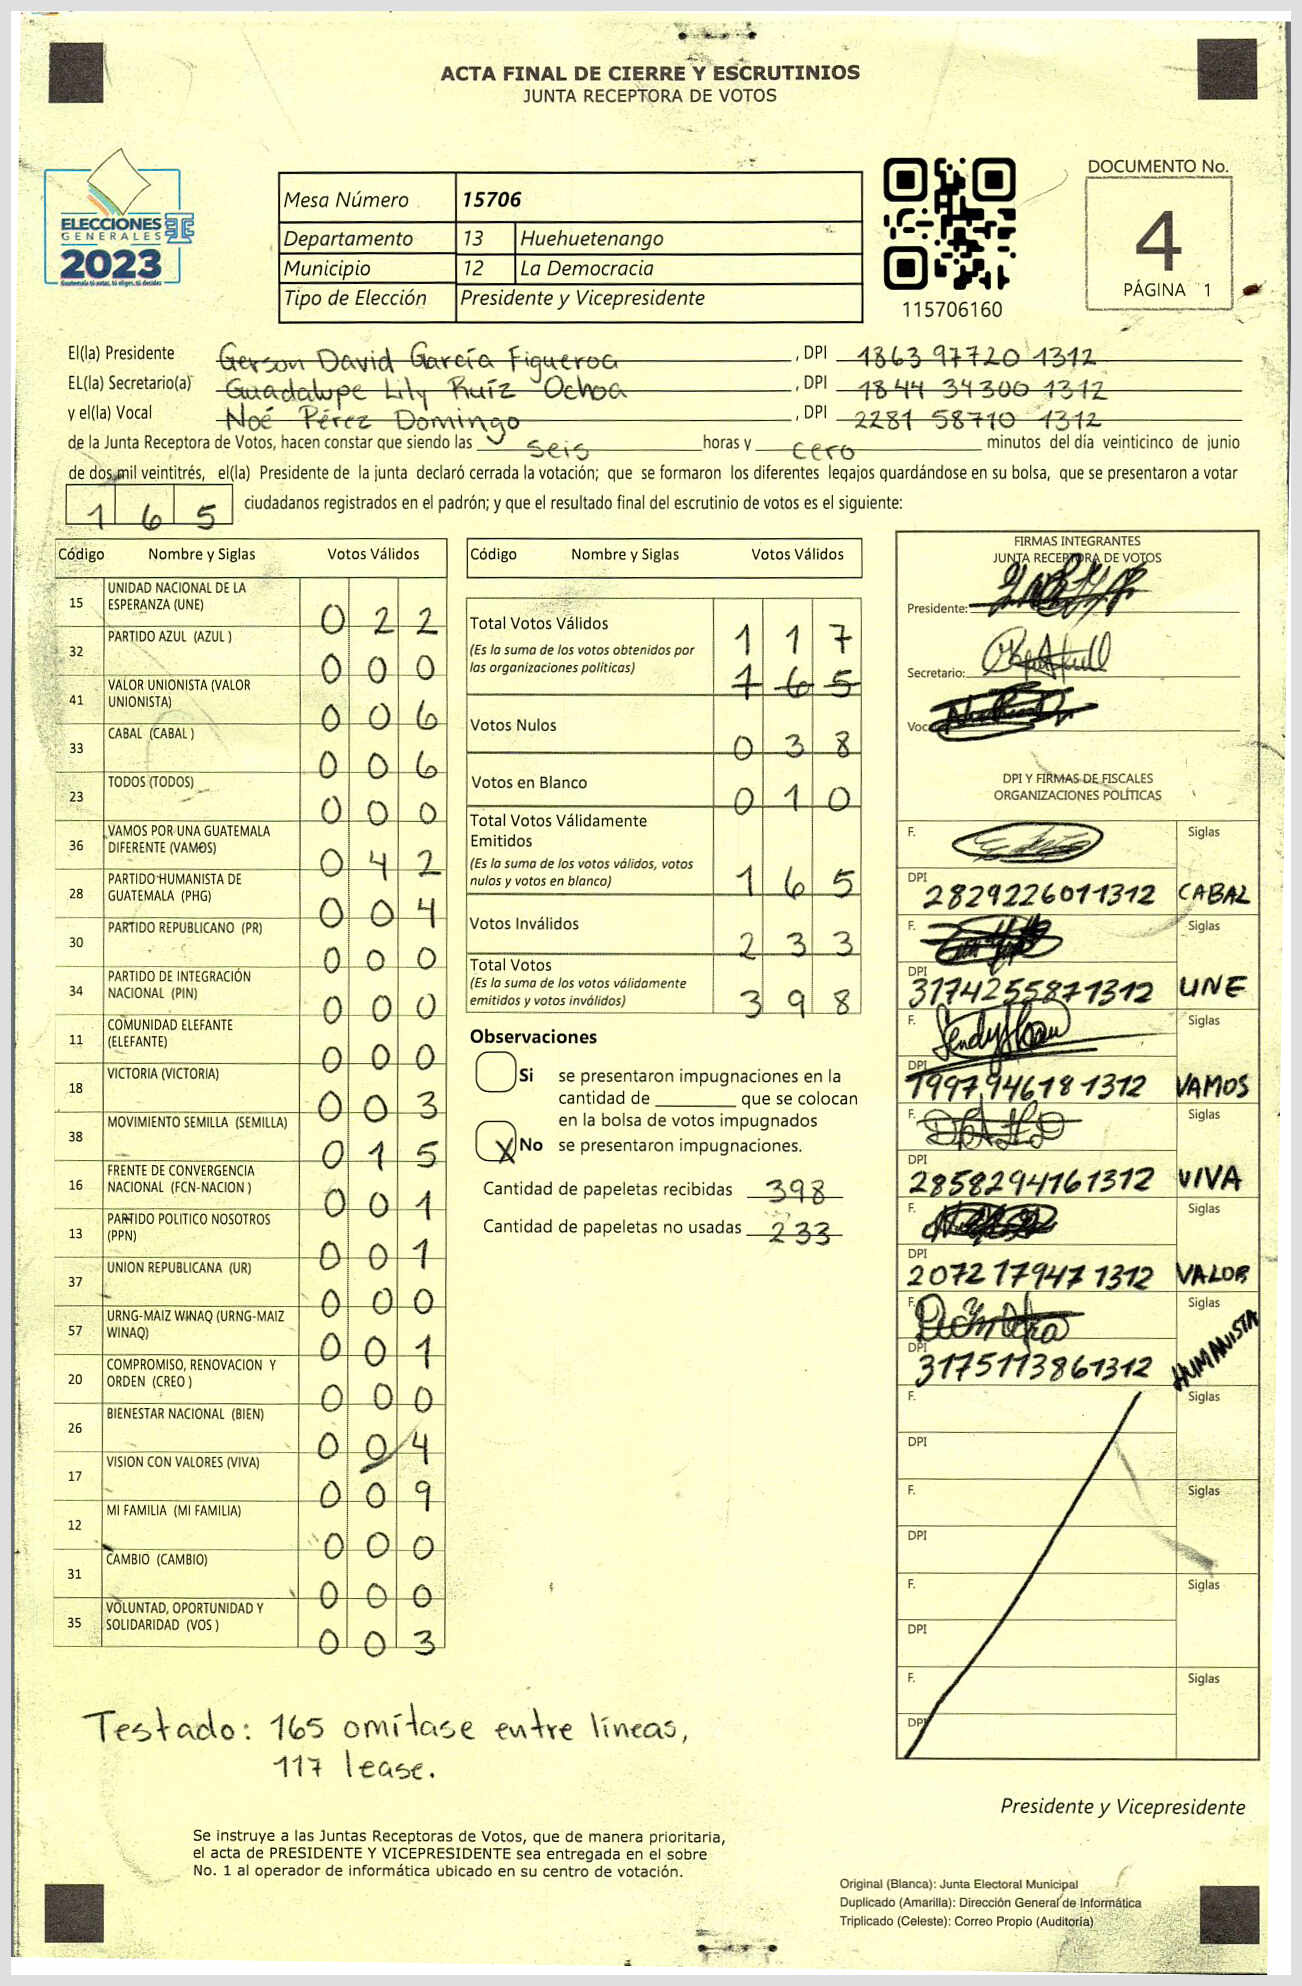 ACTA FINAL DE CIERRE Y ESCRUTINIOS
JUNTA RECEPTORA DE VOTOS
ELECCIONES
GENERALES
2023
Guatemala tú votas, tú eliges, tú decides
Mesa Número 15706
Departamento 13 Huehuetenango
Municipio 12 La Democracia
Tipo de Elección Presidente y Vicepresidente
115706160
DOCUMENTO No.
4
PÁGINA 1
El(la) Presidente Gerson David García Figueroa , DPI 1863 97720 1312
EL(la) Secretario(a) Guadalupe Lily Ruíz Ochoa , DPI 1844 34300 1312
y el(la) Vocal Noé Pérez Domingo , DPI 2281 58710 1312
de la Junta Receptora de Votos, hacen constar que siendo las seis horas y cero minutos del día veinticinco de junio
de dos mil veintitrés, el(la) Presidente de la junta declaró cerrada la votación; que se formaron los diferentes legajos guardándose en su bolsa, que se presentaron a votar
165 ciudadanos registrados en el padrón; y que el resultado final del escrutinio de votos es el siguiente:
Código Nombre y Siglas Votos Válidos
15 UNIDAD NACIONAL DE LA ESPERANZA (UNE) 0 2 2
32 PARTIDO AZUL (AZUL ) 0 0 0
41 VALOR UNIONISTA (VALOR UNIONISTA) 0 0 6
33 CABAL (CABAL ) 0 0 6
23 TODOS (TODOS) 0 0 0
36 VAMOS POR UNA GUATEMALA DIFERENTE (VAMOS) 0 4 2
28 PARTIDO HUMANISTA DE GUATEMALA (PHG) 0 0 4
30 PARTIDO REPUBLICANO (PR) 0 0 0
34 PARTIDO DE INTEGRACIÓN NACIONAL (PIN) 0 0 0
11 COMUNIDAD ELEFANTE (ELEFANTE) 0 0 0
18 VICTORIA (VICTORIA) 0 0 3
38 MOVIMIENTO SEMILLA (SEMILLA) 0 1 5
16 FRENTE DE CONVERGENCIA NACIONAL (FCN-NACION ) 0 0 1
13 PARTIDO POLITICO NOSOTROS (PPN) 0 0 1
37 UNION REPUBLICANA (UR) 0 0 0
57 URNG-MAIZ WINAQ (URNG-MAIZ WINAQ) 0 0 1
20 COMPROMISO, RENOVACION Y ORDEN (CREO ) 0 0 0
26 BIENESTAR NACIONAL (BIEN) 0 0 4
17 VISION CON VALORES (VIVA) 0 0 9
12 MI FAMILIA (MI FAMILIA) 0 0 0
31 CAMBIO (CAMBIO) 0 0 0
35 VOLUNTAD, OPORTUNIDAD Y SOLIDARIDAD (VOS ) 0 0 3
Código Nombre y Siglas Votos Válidos
Total Votos Válidos 1 1 7
(Es la suma de los votos obtenidos por
las organizaciones políticas) 1 6 5
Votos Nulos 0 3 8
Votos en Blanco 0 1 0
Total Votos Válidamente
Emitidos
(Es la suma de los votos válidos, votos
nulos y votos en blanco) 1 6 5
Votos Inválidos 2 3 3
Total Votos
(Es la suma de los votos válidamente
emitidos y votos inválidos) 3 9 8
Observaciones
Si se presentaron impugnaciones en la
cantidad de ________ que se colocan
en la bolsa de votos impugnados
X No se presentaron impugnaciones.
Cantidad de papeletas recibidas 398
Cantidad de papeletas no usadas 233
FIRMAS INTEGRANTES
JUNTA RECEPTORA DE VOTOS
Presidente:
Secretario:
Vocal
DPI Y FIRMAS DE FISCALES
ORGANIZACIONES POLÍTICAS
F. Siglas
DPI 2829226011312 CABAL
F. Siglas
DPI 3174255871312 UNE
F. Siglas
DPI 1997946181312 VAMOS
F. Siglas
DPI 2858294161312 VIVA
F. Siglas
DPI 2072179471312 VALOR
F. Siglas
DPI 3175113861312 HUMANISTA
F. Siglas
DPI
F. Siglas
DPI
F. Siglas
DPI
F. Siglas
DPI
Testado: 165 omítase entre líneas,
117 lease.
Presidente y Vicepresidente
Se instruye a las Juntas Receptoras de Votos, que de manera prioritaria,
el acta de PRESIDENTE Y VICEPRESIDENTE sea entregada en el sobre
No. 1 al operador de informática ubicado en su centro de votación.
Original (Blanca): Junta Electoral Municipal
Duplicado (Amarilla): Dirección General de Informática
Triplicado (Celeste): Correo Propio (Auditoría)